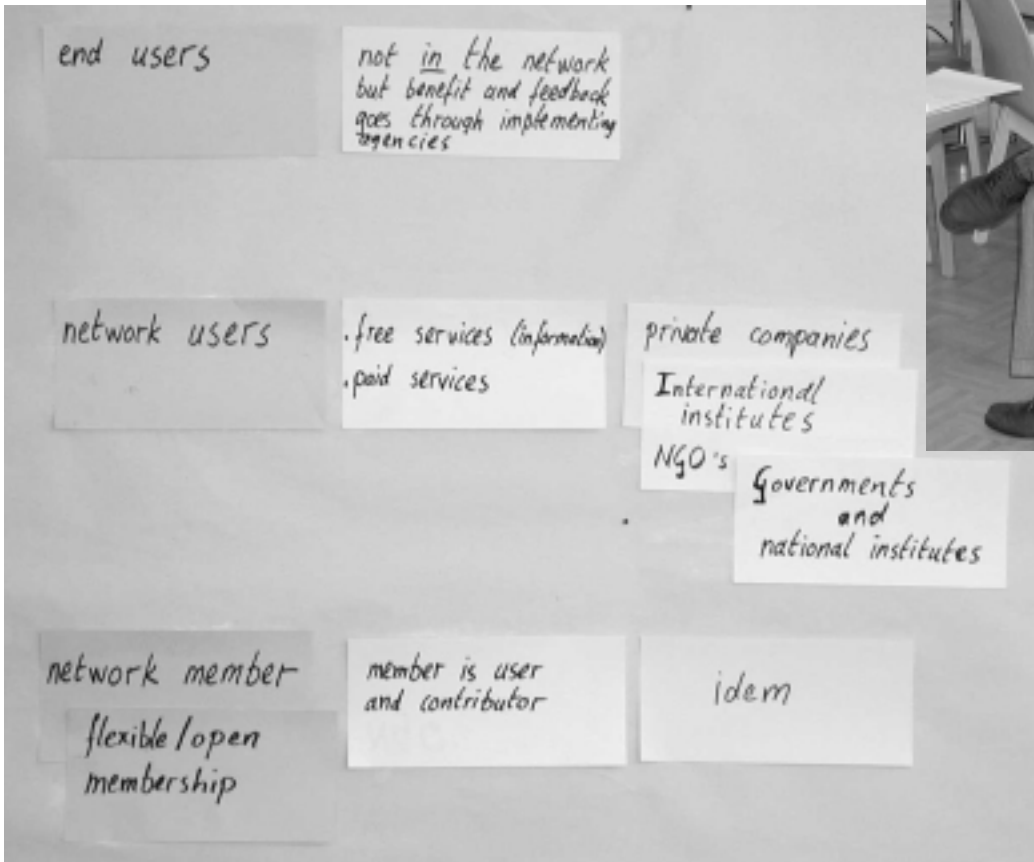 end users
not in the network
but benefit and feedback
goes through implementing
agencies
network users
. free services (information)
. paid services
private companies
International
institutes
NGO's
Governments
and
national institutes
network member
flexible/open
membership
member is user
and contributor
idem